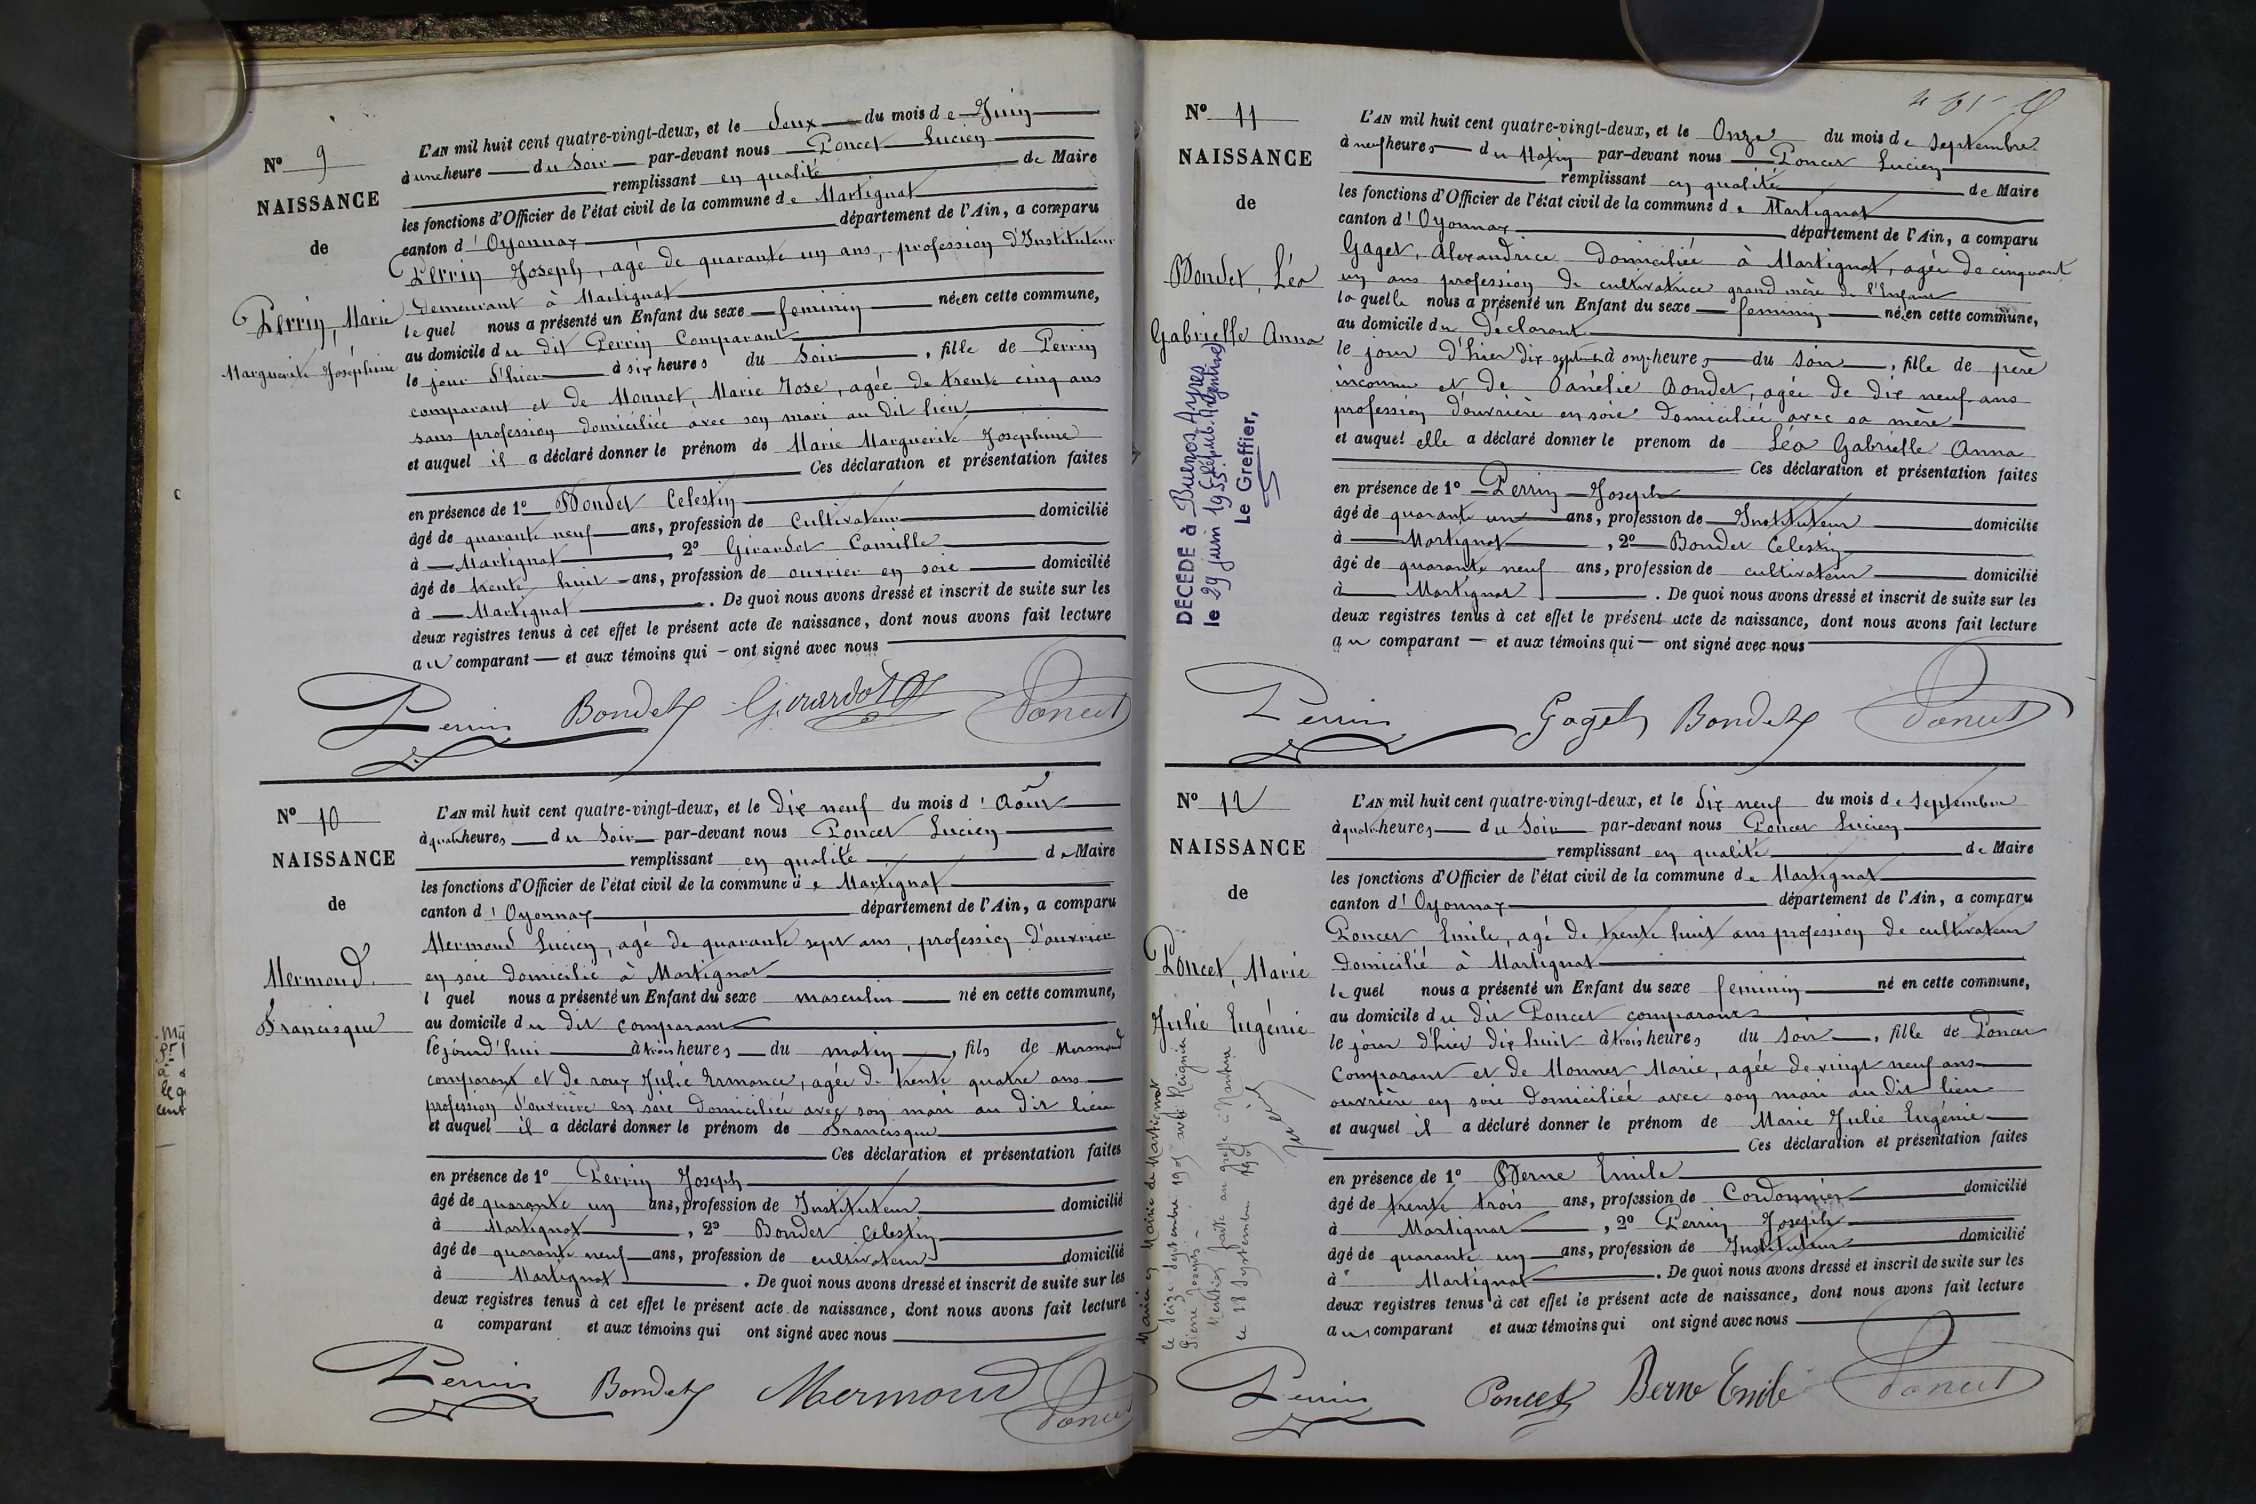 N° 9
NAISSANCE
de
Perrin, Marie
Marguerite Joséphine
L'AN mil huit cent quatre-vingt-deux, et le deux du mois de Juin
à une heure du Soir par-devant nous Poncet Lucien
remplissant en qualité de Maire
les fonctions d'Officier de l'état civil de la commune de Martignat
canton d'Oyonnax département de l'Ain, a comparu
Perrin Joseph, agé de quarante un ans, profession d'Instituteur
demeurant à Martignat
lequel nous a présenté un Enfant du sexe feminin née en cette commune,
au domicile du dit Perrin Comparant
le jour d'hier à six heures du Soir, fille de Perrin
comparant et de Monnet, Marie Rose, agée de trente cinq ans
sans profession domiciliée avec son mari au dit lieu
et auquel il a déclaré donner le prénom de Marie Marguerite Josephine
Ces déclaration et présentation faites
en présence de 1° Bondet Celestin
âgé de quarante neuf ans, profession de Cultivateur domicilié
à Martignat, 2° Girardot Camille
âgé de trente huit ans, profession de ouvrier en soie domicilié
à Martignat. De quoi nous avons dressé et inscrit de suite sur les
deux registres tenus à cet effet le présent acte de naissance, dont nous avons fait lecture
au comparant et aux témoins qui ont signé avec nous
Perrin Bondet Girardot Poncet
N° 10
NAISSANCE
de
Mermond
Francisque
L'AN mil huit cent quatre-vingt-deux, et le dix neuf du mois d'Août
à quatre heures du Soir par-devant nous Poncet Lucien
remplissant en qualité de Maire
les fonctions d'Officier de l'état civil de la commune de Martignat
canton d'Oyonnax département de l'Ain, a comparu
Mermond Lucien, agé de quarante sept ans, profession d'ouvrier
en soie domicilié à Martignat
l quel nous a présenté un Enfant du sexe masculin né en cette commune,
au domicile du dit comparant
le jourd'hui à trois heures du matin, fils de Mermond
comparant et de roux Julie Ermance, agée de trente quatre ans
profession d'ouvrière en soie domiciliée avec son mari au dit lieu
et auquel il a déclaré donner le prénom de Francisque
Ces déclaration et présentation faites
en présence de 1° Perrin Joseph
âgé de quarante un ans, profession de Instituteur domicilié
à Martignat, 2° Bondet Celestin
âgé de quarante neuf ans, profession de cultivateur domicilié
à Martignat. De quoi nous avons dressé et inscrit de suite sur les
deux registres tenus à cet effet le présent acte de naissance, dont nous avons fait lecture
a comparant et aux témoins qui ont signé avec nous
Perrin Bondet Mermond Poncet
N° 11
NAISSANCE
de
Bondet, Léa
Gabrielle Anna
DÉCÉDÉ à Buenos Ayres
le 29 juin 1955 (Répub. Argentine)
Le Greffier,
L'AN mil huit cent quatre-vingt-deux, et le Onze du mois de Septembre
à neuf heures du Matin par-devant nous Poncet Lucien
remplissant en qualité de Maire
les fonctions d'Officier de l'état civil de la commune de Martignat
canton d'Oyonnax département de l'Ain, a comparu
Gaget, Alexandrice domiciliée à Martignat, agée de cinquante
un ans profession de cultivatrice grand mère de l'Enfant
laquelle nous a présenté un Enfant du sexe feminin né en cette commune,
au domicile du declarant
le jour d'hier dix sept à onze heures du soir, fille de père
inconnu et de Bondet, agée de dix neuf ans
profession d'ouvrière en soie domiciliée avec sa mère
et auquel elle a déclaré donner le prenom de Léa Gabrielle Anna
Ces déclaration et présentation faites
en présence de 1° Perrin Joseph
âgé de quarante un ans, profession de Instituteur domicilié
à Martignat, 2° Bondet Celestin
âgé de quarante neuf ans, profession de cultivateur domicilié
à Martignat. De quoi nous avons dressé et inscrit de suite sur les
deux registres tenus à cet effet le présent acte de naissance, dont nous avons fait lecture
au comparant et aux témoins qui ont signé avec nous
Perrin Gaget Bondet Poncet
N° 12
NAISSANCE
de
Poncet, Marie
Julie Eugénie
Mariée à Mairie de Martignat
le seize Septembre 1905 avec Reignier
Pierre Joseph
Mention faite au greffe à Nantua
le 18 Septembre 1905
L'AN mil huit cent quatre-vingt-deux, et le dix neuf du mois de Septembre
à quatre heures du Soir par-devant nous Poncet Lucien
remplissant en qualité de Maire
les fonctions d'Officier de l'état civil de la commune de Martignat
canton d'Oyonnax département de l'Ain, a comparu
Poncet, Emile, agé de trente huit ans profession de cultivateur
domicilié à Martignat
lequel nous a présenté un Enfant du sexe feminin né en cette commune,
au domicile du dit Poncet comparant
le jour d'hier dix huit à trois heures du soir, fille de Poncet
Comparant et de Monnet Marie, agée de vingt neuf ans
ouvrière en soie domiciliée avec son mari au dit lieu
et auquel il a déclaré donner le prénom de Marie Julie Eugénie
Ces déclaration et présentation faites
en présence de 1° Berne Emile
âgé de trente trois ans, profession de Cordonnier domicilié
à Martignat, 2° Perrin Joseph
âgé de quarante un ans, profession de Instituteur domicilié
à Martignat. De quoi nous avons dressé et inscrit de suite sur les
deux registres tenus à cet effet le présent acte de naissance, dont nous avons fait lecture
au comparant et aux témoins qui ont signé avec nous
Perrin Poncet Berne Emile Poncet